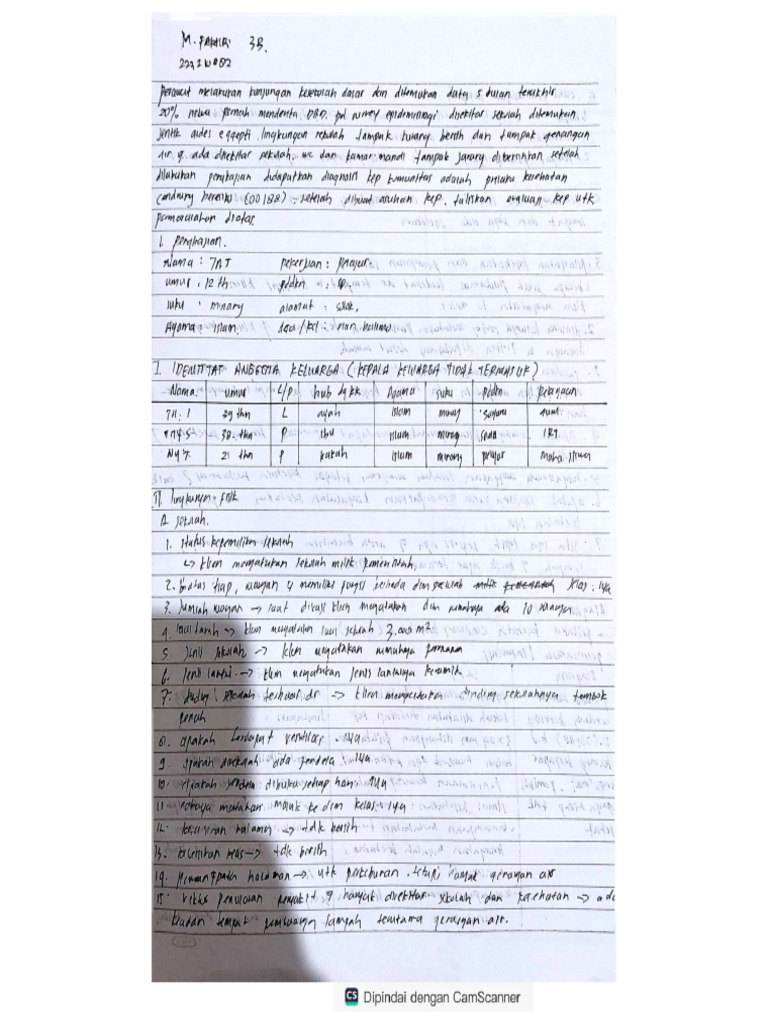 M. FAKHRI 3B.
Perawat melakukan kunjungan kesekolah dasar dan ditemukan data 5 bulan terakhir
20% siswa pernah menderita DBD. pd survey epidemiologi disekitar sekolah ditemukan
jentik aides egypti, lingkungan sekolah tampak kurang bersih dan tampak genangan
air yg ada disekitar sekolah, wc dan kamar mandi tampak jarang dibersihkan setelah
dilakukan pengkajian didapatkan diagnosis kep komunitas adalah prilaku kesehatan
cendrung beresiko (00188). setelah dibuat asuhan kep. tuliskan evaluasi kep utk
permasalahan diatas
1. pengkajian.
Nama : pekerjaan : pelajar
umur : 12 th pddkn :
suku : minang alamat :
Agama : islam.
I. IDENTITAS ANGGOTA KELUARGA (KEPALA KELUARGA TIDAK TERMASUK)
Nama umur L/P hub dg KK Agama suku pddkn Pekerjaan
39 thn L ayah islam minang
38 thn P ibu islam minang IRT
21 thn P kakak islam minang pelajar
II. lingkungan fisik
A. sekolah.
1. status kepemilikan sekolah
↳ klien mengatakan sekolah milik pemerintah.
2. tiap ruangan memiliki fungsi berbeda
3. Jumlah ruangan → saat dikaji klien mengatakan ada 10 ruangan
4. luas tanah → klien mengatakan luas sekolah 3.000 m²
5. Jenis sekolah → klien mengatakan rumahnya permanen
6. Jenis lantai → klien mengatakan jenis lantainya keramik
7. dinding sekolah terbuat dr → klien mengatakan dinding sekolahnya tembok
penuh
8. apakah terdapat ventilasi : iya
9. apakah disekolah ada jendela : iya
10. apakah jendela dibuka setiap hari : iya
11. cahaya matahari masuk ke dlm kelas : iya
12. kebersihan halaman → tdk bersih
13. kebersihan kelas → tdk bersih
14. pemanfaatan halaman → utk perkebunan, tetapi banyak genangan air
15. penyakit yg banyak disekitar sekolah dan kesehatan → ada
tempat pembuangan sampah terutama genangan air.
CS Dipindai dengan CamScanner